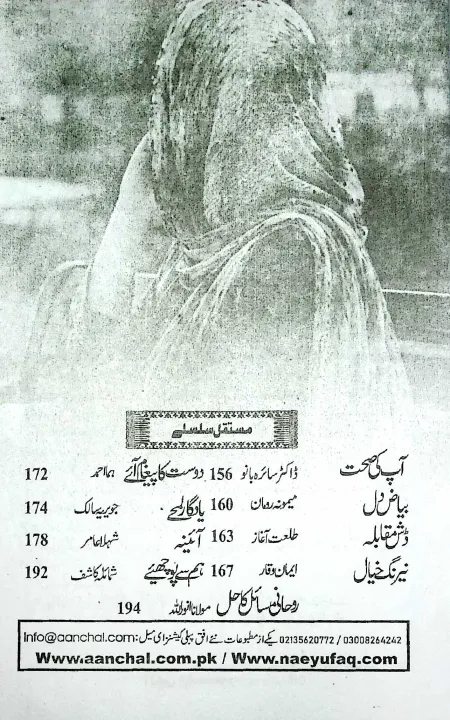 مستقل سلسلے
آپ کی صحت ڈاکٹر سائرہ بانو 156 دوست کا پیغام آئے ہما احمد 172
بیاض دل میمونہ رومان 160 یادگار لمحے جویریہ سالک 174
ڈش مقابلہ طلعت آغاز 163 آئینہ شہلا عامر 178
نیرنگ خیال ایمان وقار 167 ہم سے پوچھئے شمائلہ کاشف 192
روحانی مسائل کا حل مولانا 194
02135620772 / 03008264242 یکے از مطبوعات نئے افق پبلی کیشنز ای میل: Info@aanchal.com
Www.aanchal.com.pk / Www.naeyufaq.com